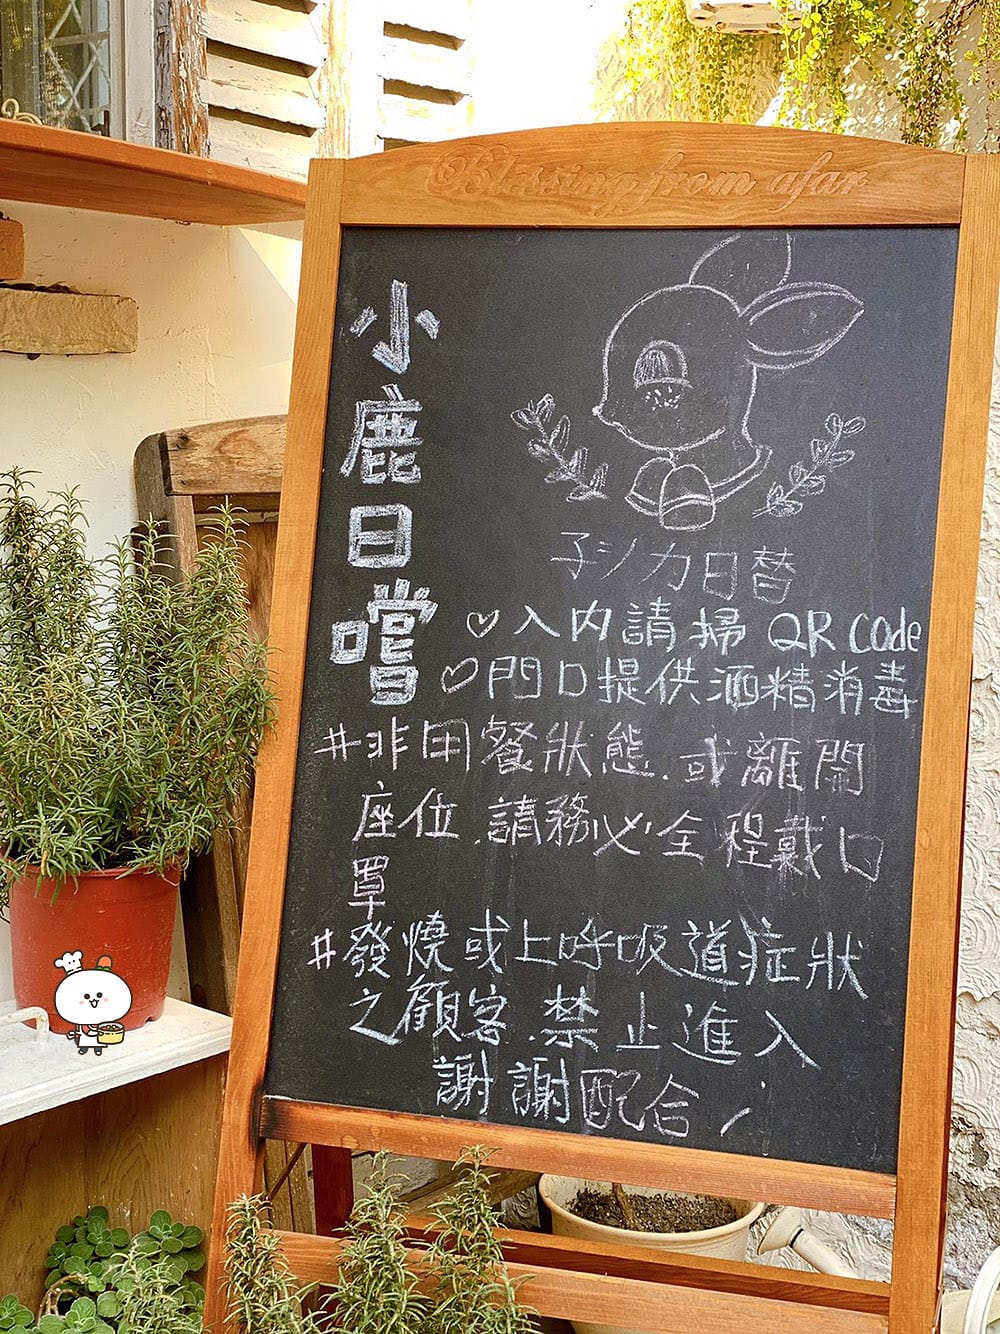 Blessing from afar
小鹿日嚐
子シカ日替
♡入内請掃 QR Code
♡門口提供酒精消毒
#非用餐狀態.或離開
座位.請務必全程戴口
罩
#發燒或上呼吸道症狀
之顧客.禁止進入
謝謝配合!